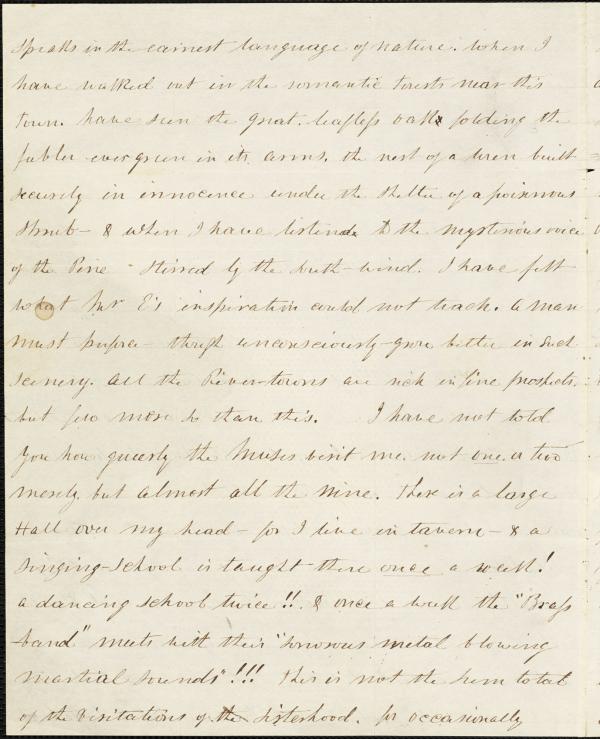 speaks in the earnest language of nature. When I
have walked out in the romantic forests near this
town. have seen the great. leafless oak folding the
feebler evergreen in its arms. the nest of a wren built
securely in innocence under the shelter of a poisonous
shrub - & when I have listened to the mysterious voice
of the Pine - stirred by the south-wind. I have felt
what Mr E's inspiration could not teach. A man
must - though unconsciously - grow better in such
scenery. All the River-towns are rich in fine prospects.
but few more so than this. I have not told
you how queerly the Muses visit me. not one or two
merely. but almost all the nine. There is a large
Hall over my head - for I live in tavern - & a
Singing-school is taught there once a week!
a dancing school twice!! & once a week the "Brass
band" meets with their "sonorous metal blowing
martial sounds"!!! This is not the sum total
of the visitations of the sisterhood. for occasionally